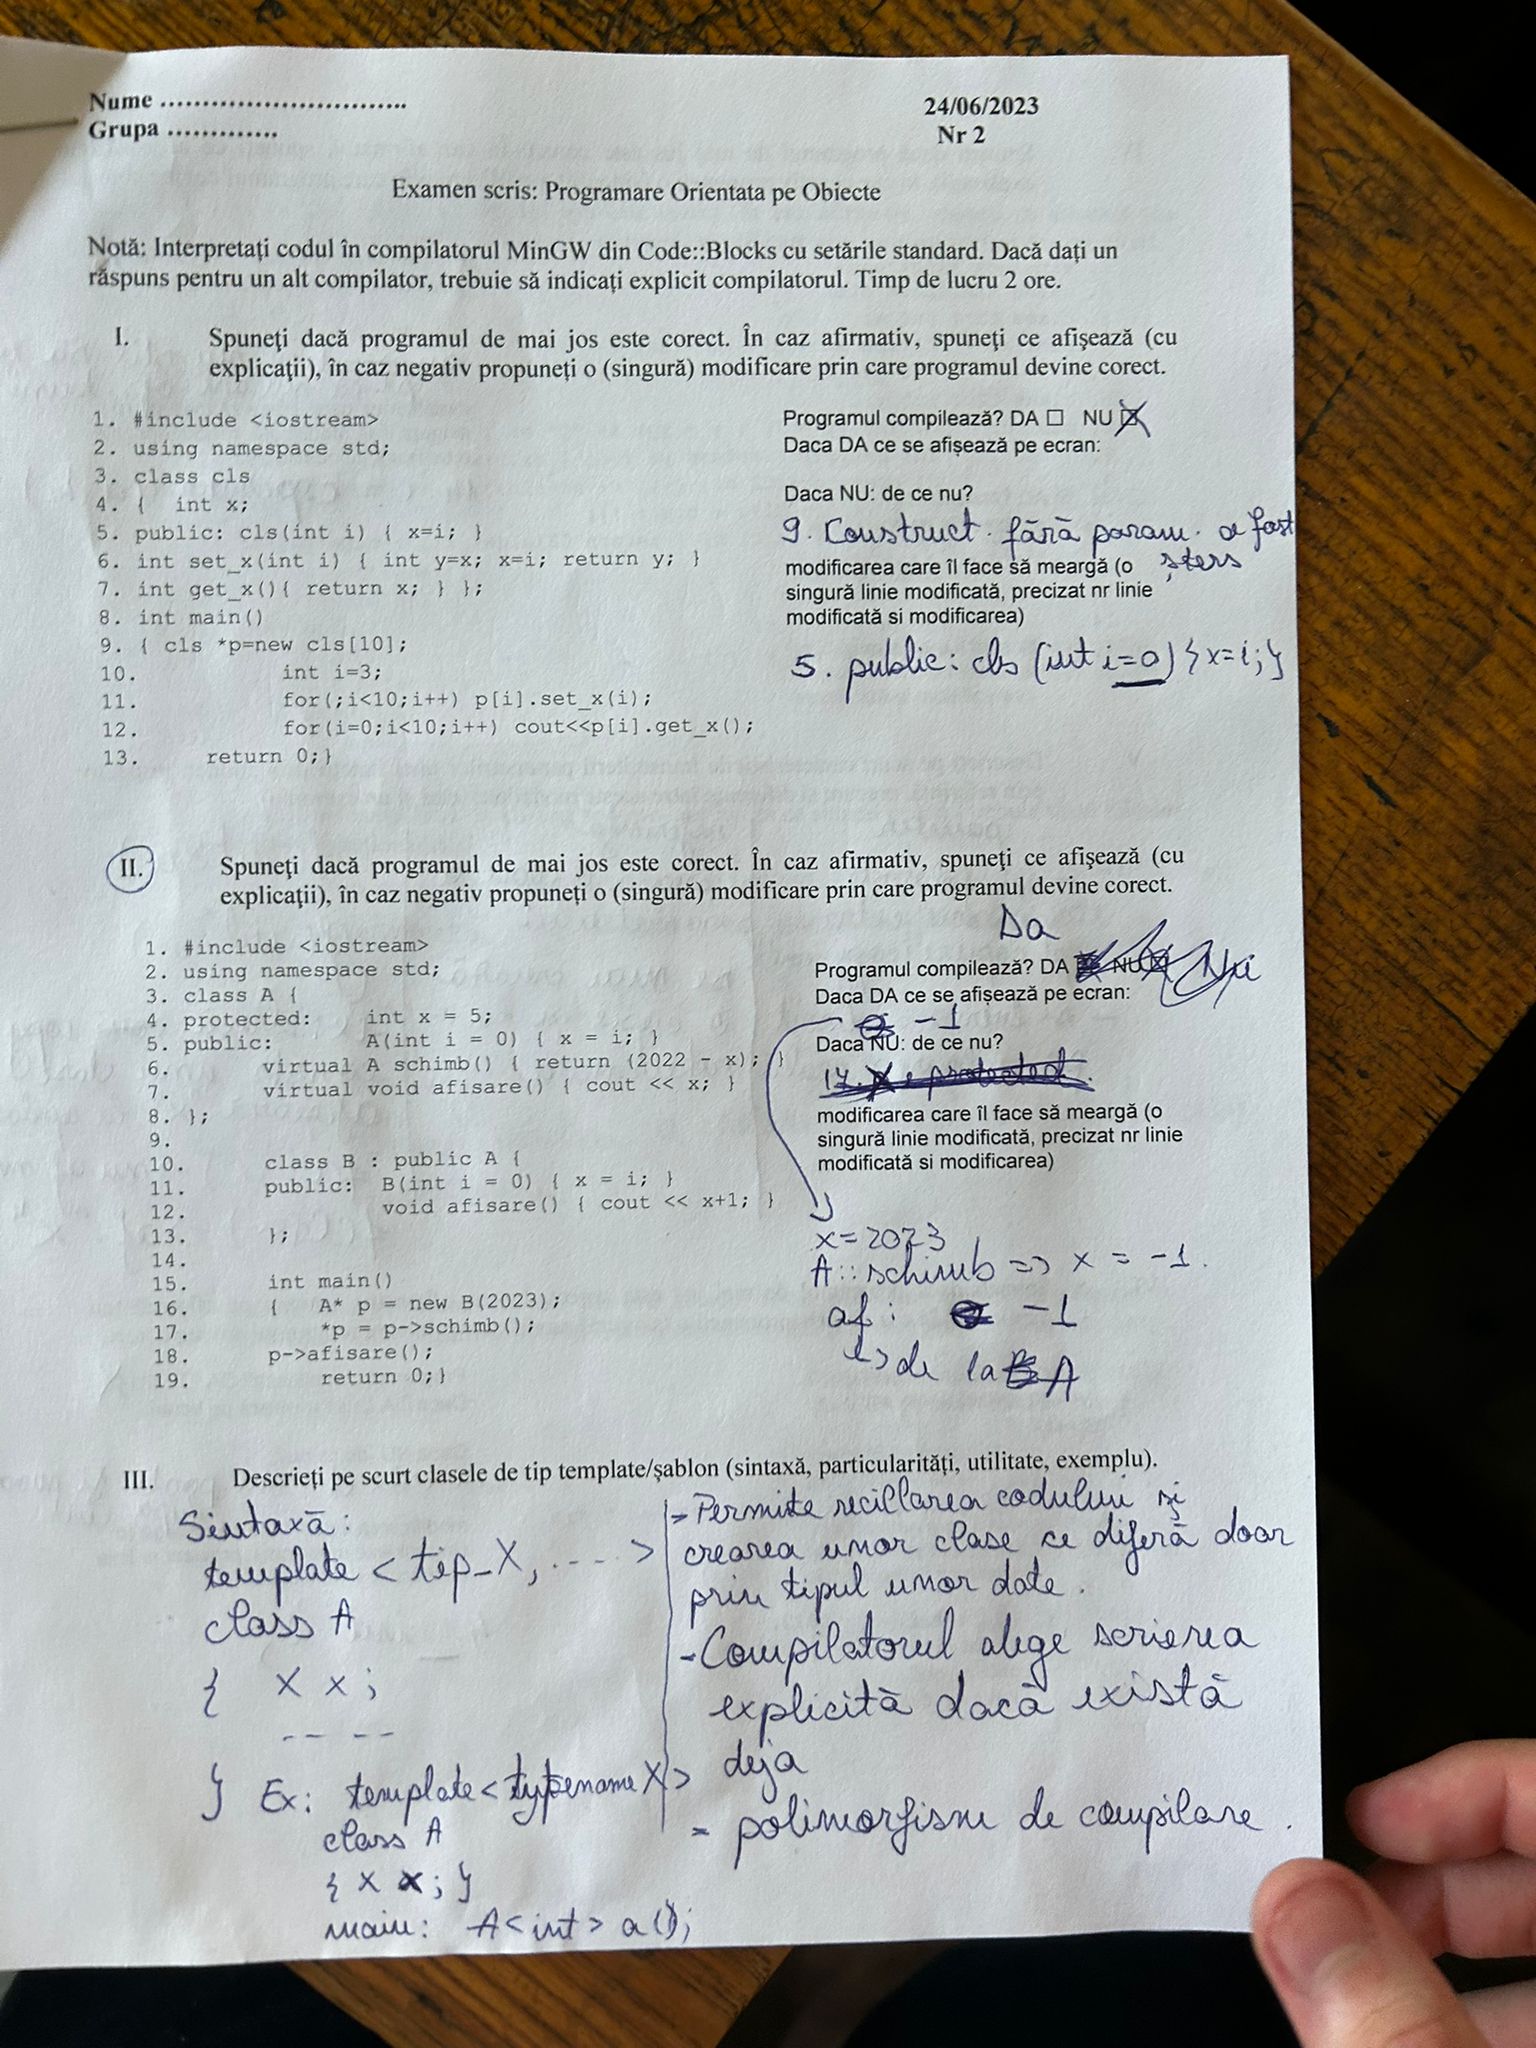 Nume .............................
Grupa .............
24/06/2023
Nr 2
Examen scris: Programare Orientata pe Obiecte
Notă: Interpretați codul în compilatorul MinGW din Code::Blocks cu setările standard. Dacă dați un
răspuns pentru un alt compilator, trebuie să indicați explicit compilatorul. Timp de lucru 2 ore.
I. Spuneţi dacă programul de mai jos este corect. În caz afirmativ, spuneţi ce afişează (cu
explicaţii), în caz negativ propuneți o (singură) modificare prin care programul devine corect.
1. #include <iostream>
2. using namespace std;
3. class cls
4. { int x;
5. public: cls(int i) { x=i; }
6. int set_x(int i) { int y=x; x=i; return y; }
7. int get_x(){ return x; } };
8. int main()
9. { cls *p=new cls[10];
10. int i=3;
11. for(;i<10;i++) p[i].set_x(i);
12. for(i=0;i<10;i++) cout<<p[i].get_x();
13. return 0;}
Programul compilează? DA ☐ NU ☒
Daca DA ce se afișează pe ecran:
Daca NU: de ce nu?
9. Construct. fără param. a fost
șters
modificarea care îl face să meargă (o
singură linie modificată, precizat nr linie
modificată si modificarea)
5. public: cls (int i=0) {x=i;}
II. Spuneţi dacă programul de mai jos este corect. În caz afirmativ, spuneţi ce afişează (cu
explicaţii), în caz negativ propuneți o (singură) modificare prin care programul devine corect.
1. #include <iostream>
2. using namespace std;
3. class A {
4. protected: int x = 5;
5. public: A(int i = 0) { x = i; }
6. virtual A schimb() { return (2022 - x); }
7. virtual void afisare() { cout << x; }
8. };
9.
10. class B : public A {
11. public: B(int i = 0) { x = i; }
12. void afisare() { cout << x+1; }
13. };
14.
15. int main()
16. { A* p = new B(2023);
17. *p = p->schimb();
18. p->afisare();
19. return 0;}
Da
Programul compilează? DA NU Nu
Daca DA ce se afișează pe ecran:
-1
Daca NU: de ce nu?
17. x e protected.
modificarea care îl face să meargă (o
singură linie modificată, precizat nr linie
modificată si modificarea)
x=2023
A::schimb => x = -1.
af: -1
↳ de la A
III. Descrieți pe scurt clasele de tip template/şablon (sintaxă, particularități, utilitate, exemplu).
Sintaxă:
template < tip_X, .... >
class A
{ X x;
-- --
}
Ex: template <typename X>
class A
{ X x; }
main: A<int> a();
- Permite reciclarea codului și
crearea unor clase ce diferă doar
prin tipul unor date.
- Compilatorul alege scrierea
explicită dacă există
deja
- polimorfism de compilare.